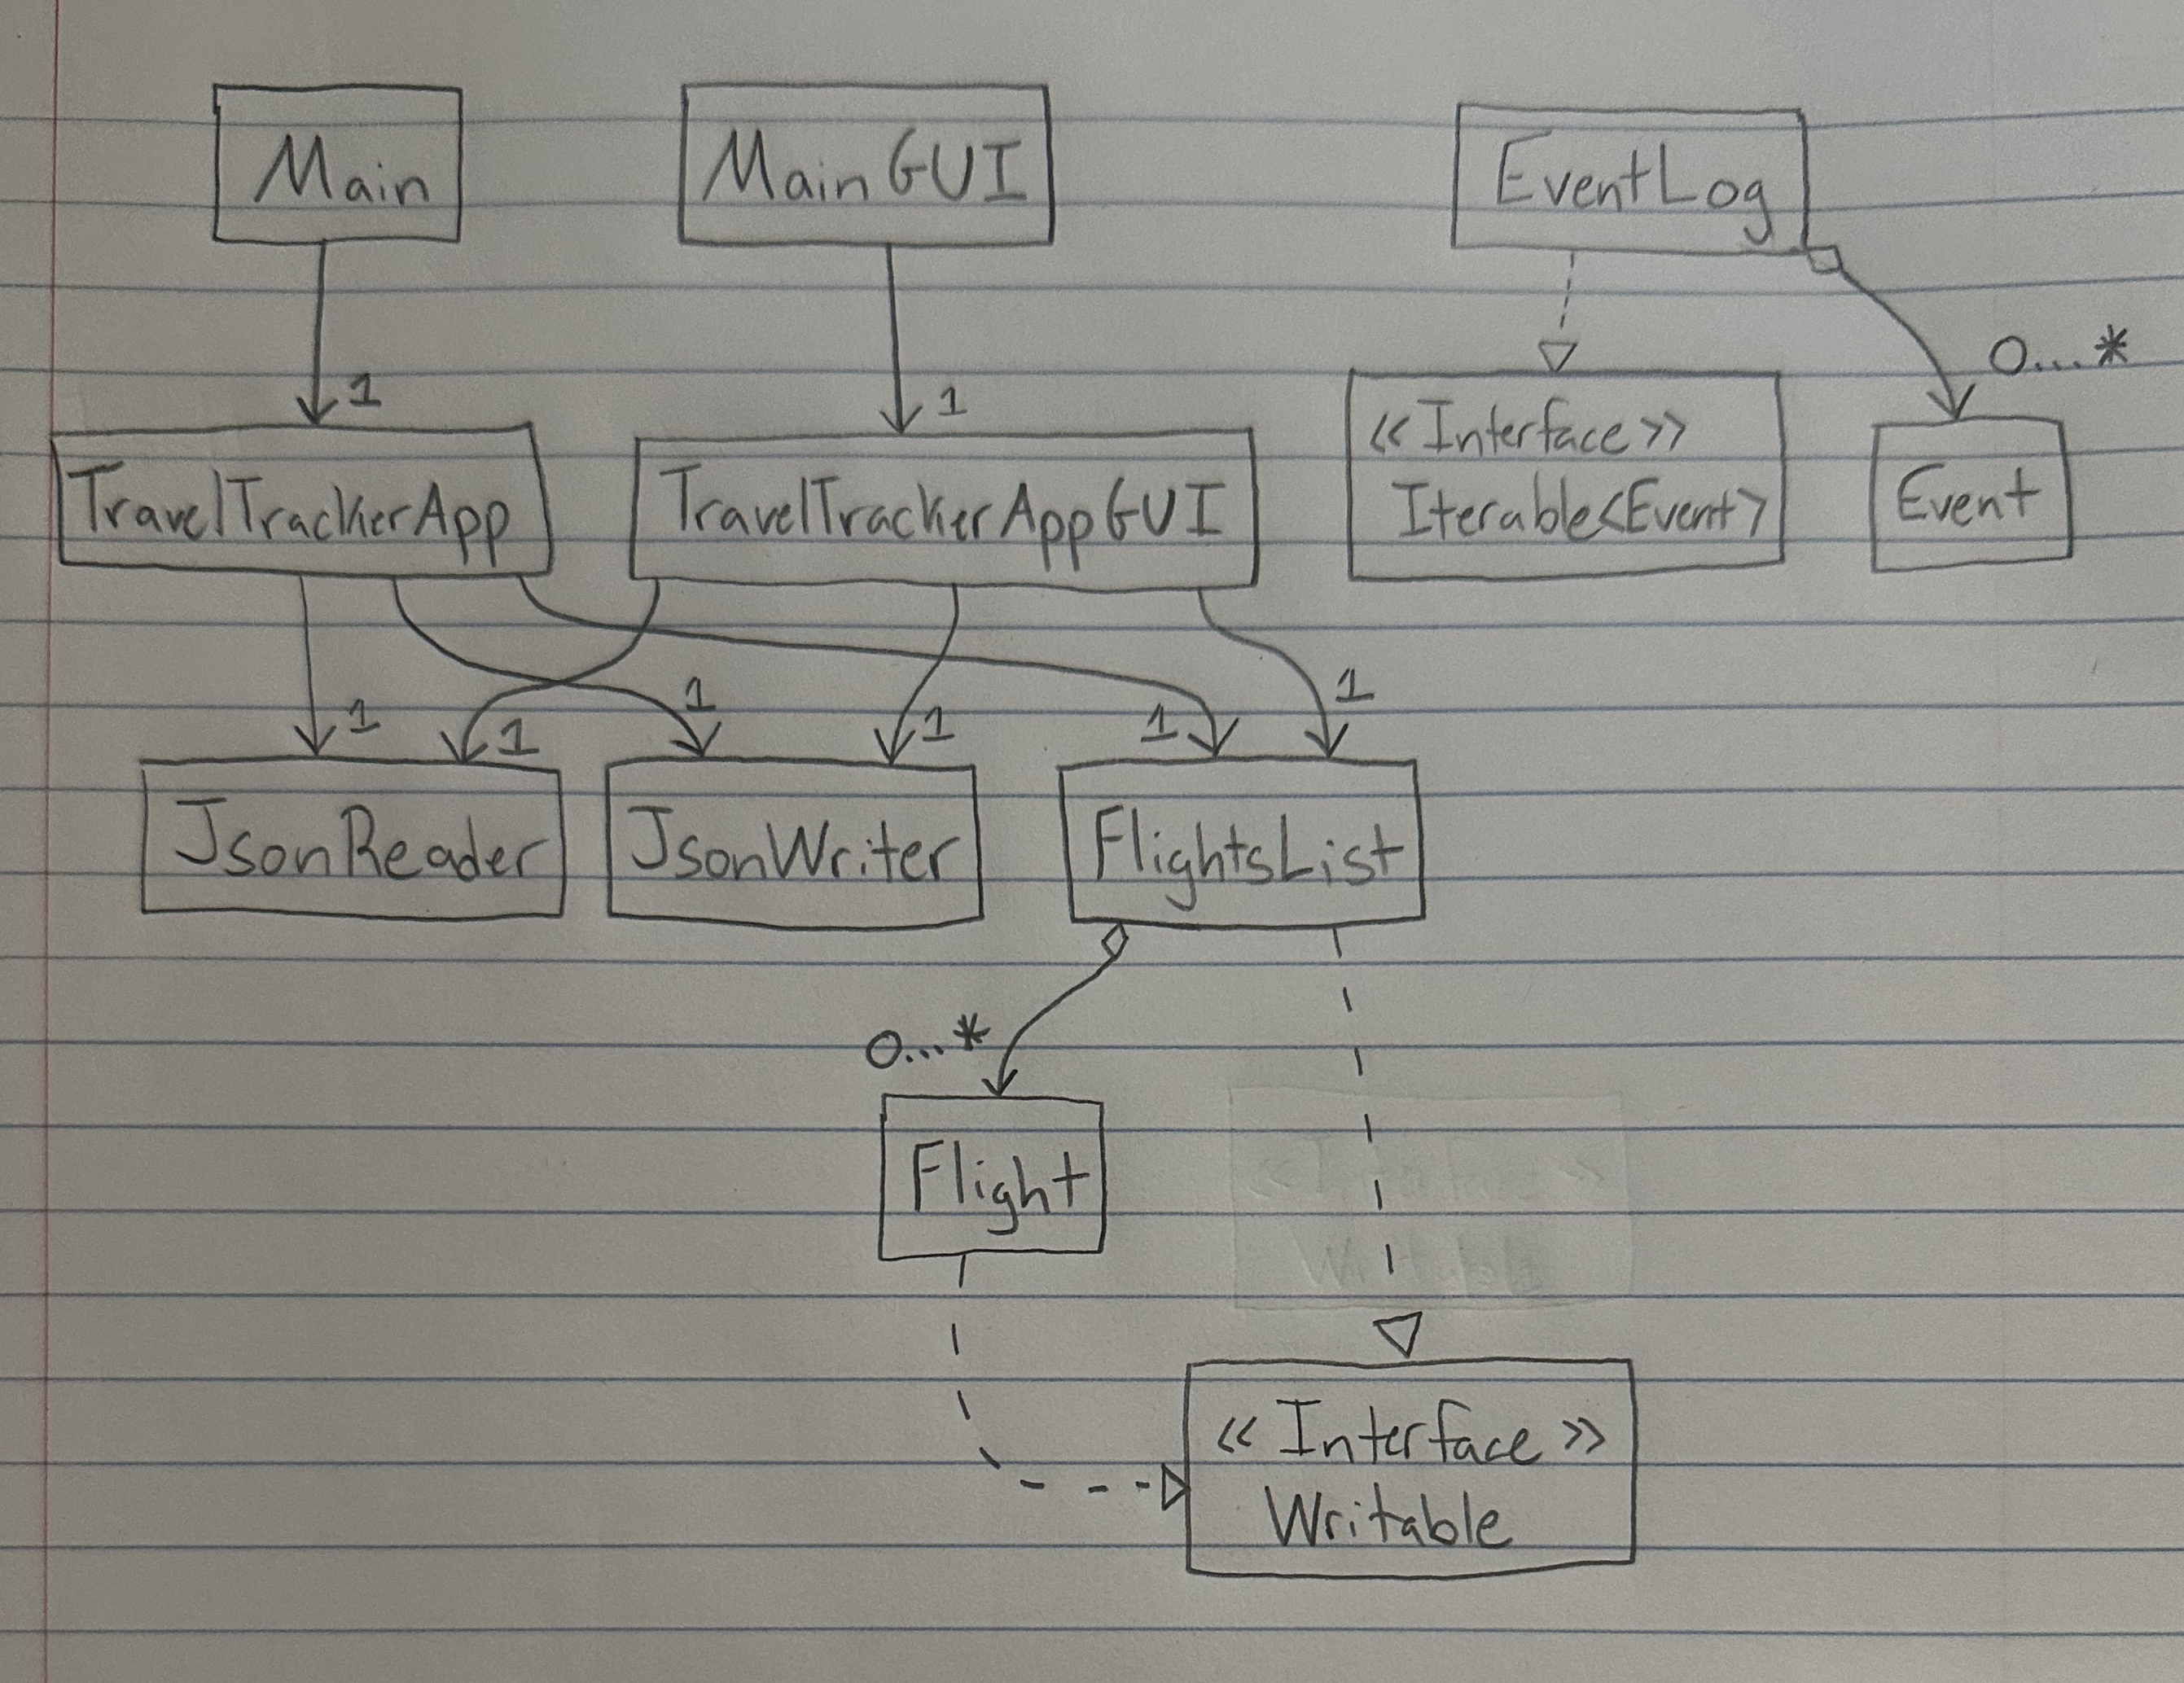 Main
MainGUI
EventLog
1
1
0...*
TravelTrackerApp
TravelTrackerAppGUI
<<Interface>>
Iterable<Event>
Event
1
1
1
1
1
1
JsonReader
JsonWriter
FlightsList
0...*
Flight
<<Interface>>
Writable